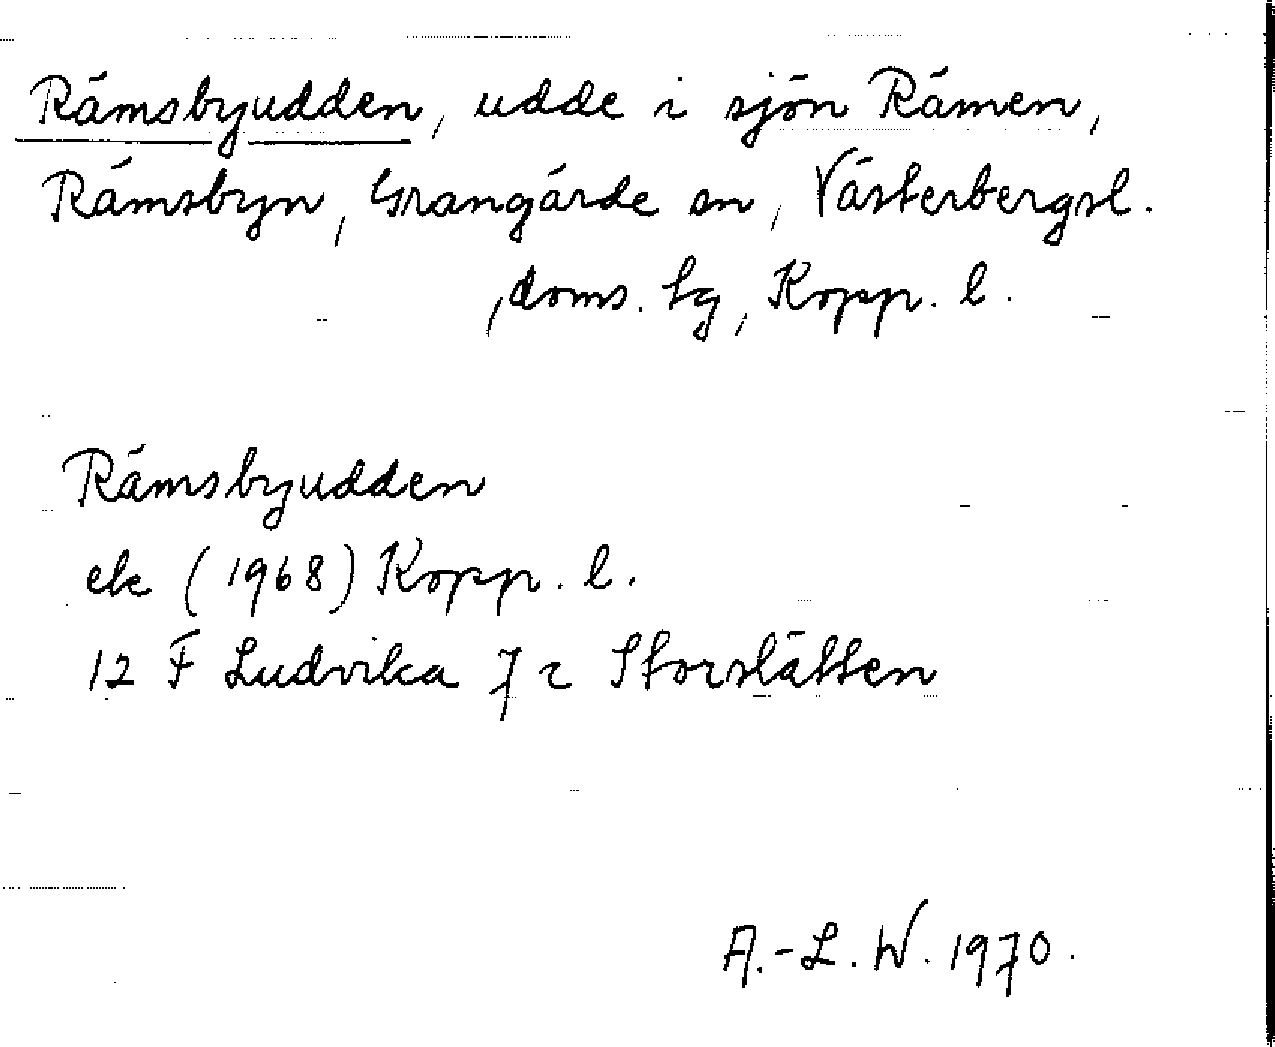 Rämsbyudden, udde i sjön Rämen,
Rämsbyn, Grangärde sn, Västerbergsl.
doms. hg, Kopp. l.
Rämsbyudden
ek (1968) Kopp. l.
12 F Ludvika 7 c Storslätten
A.-L. W. 1970.